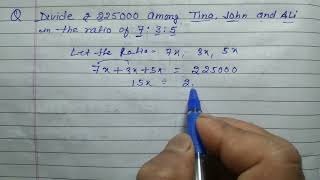 Q Divide ₹ 225000 among Tina, John and Ali
in the ratio of 7:3:5
Let the Ratio = 7x, 3x, 5x
7x + 3x + 5x = 225000
15x = 2